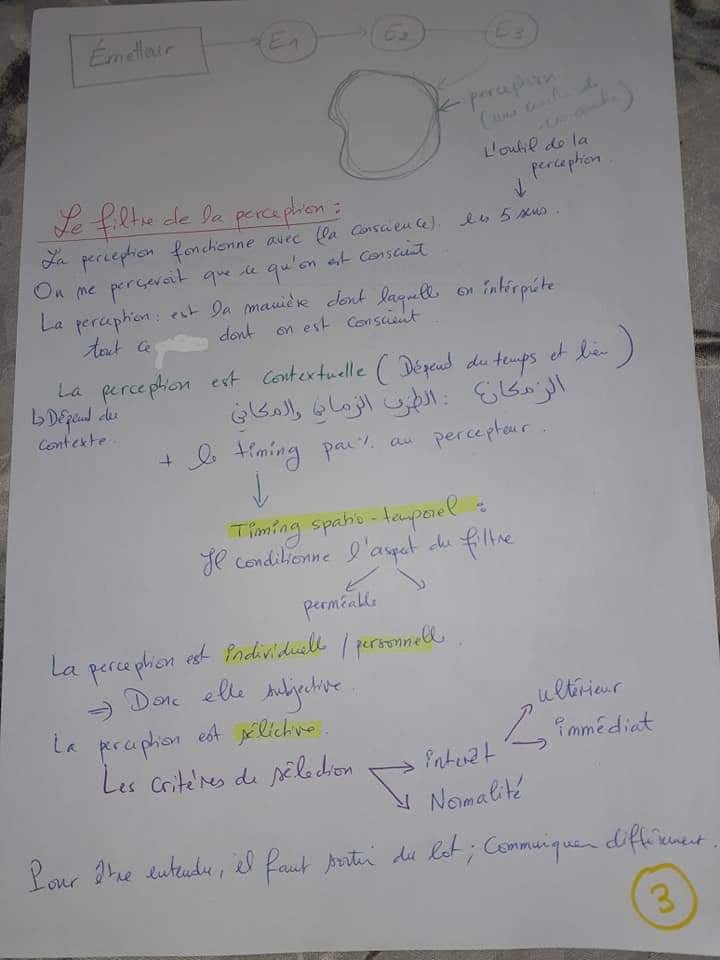 Émetteur E1 E2 E3
perception
L'outil de la
perception.
Le filtre de la perception :
La perception fonctionne avec (la conscience). les 5 sens.
On ne perçevoit que ce qu'on est conscient
La perception : est la manière dont laquelle on intérpréte
tout ce dont on est conscient.
La perception est contextuelle (Dépend du temps et lieu)
↳ Dépend du
contexte.
الزمكان : الظرف الزماني والمكاني
+ le timing par% au percepteur.
Timing spatio-temporel :
Il conditionne l'aspect du filtre
perméable
La perception est individuelle / personnelle.
⇒ Donc elle subjective.
La perception est séléctive.
Les critères de sélection → interêt → ultérieur
immédiat
Normalité
Pour être entendu, il faut sortir du lot ; Commuiquer différement.
3